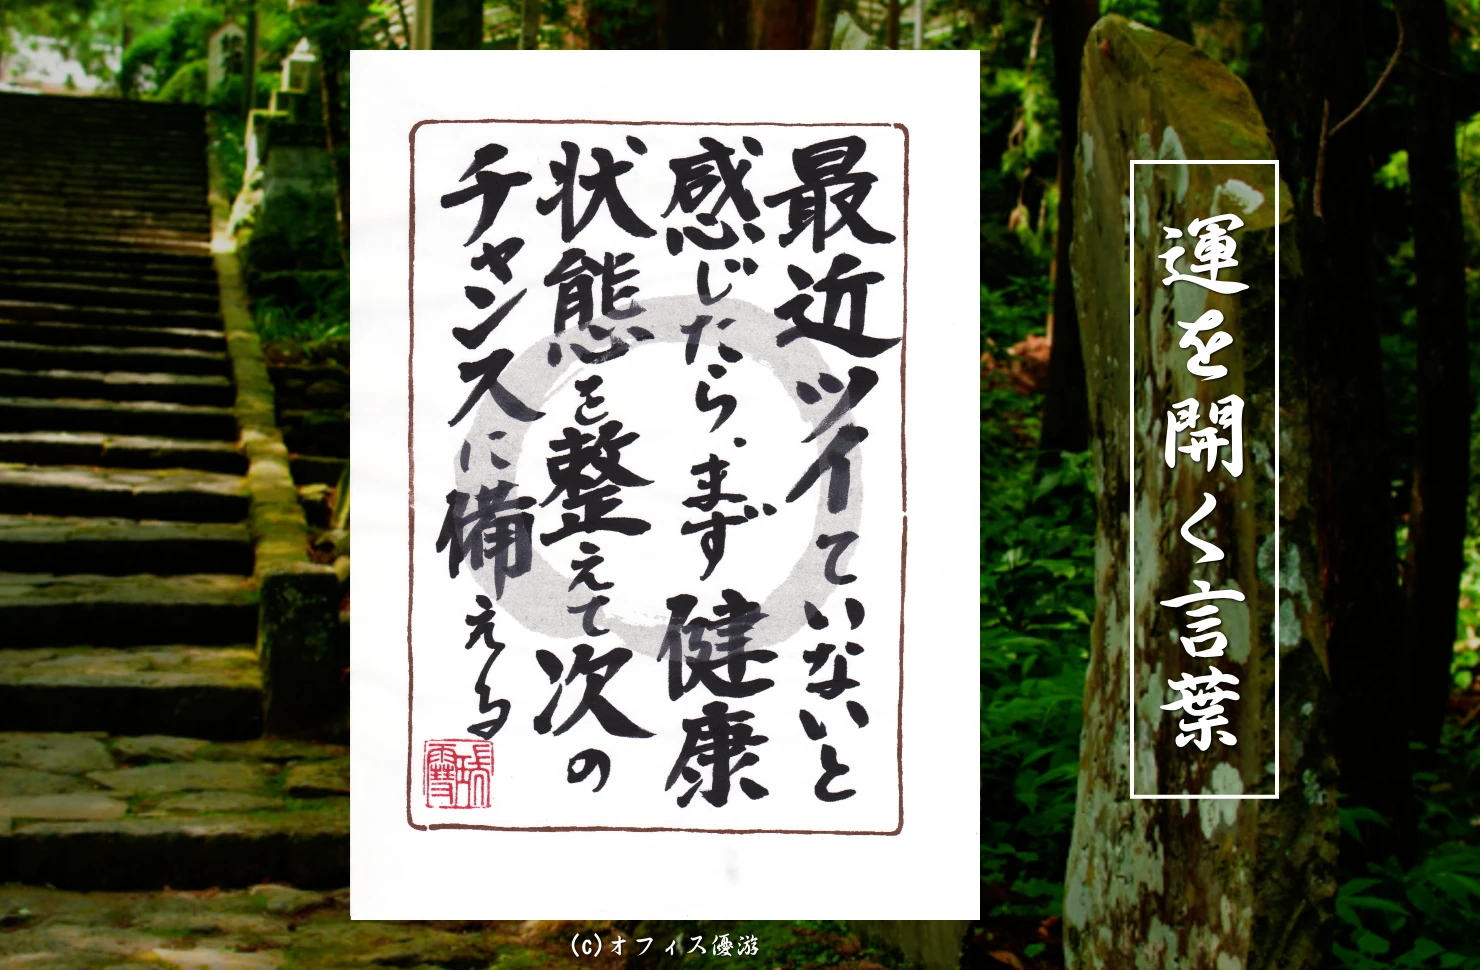 運を開く言葉
最近ツイていないと
感じたら、まず健康
状態を整えて次の
チャンスに備える
(c)オフィス優游